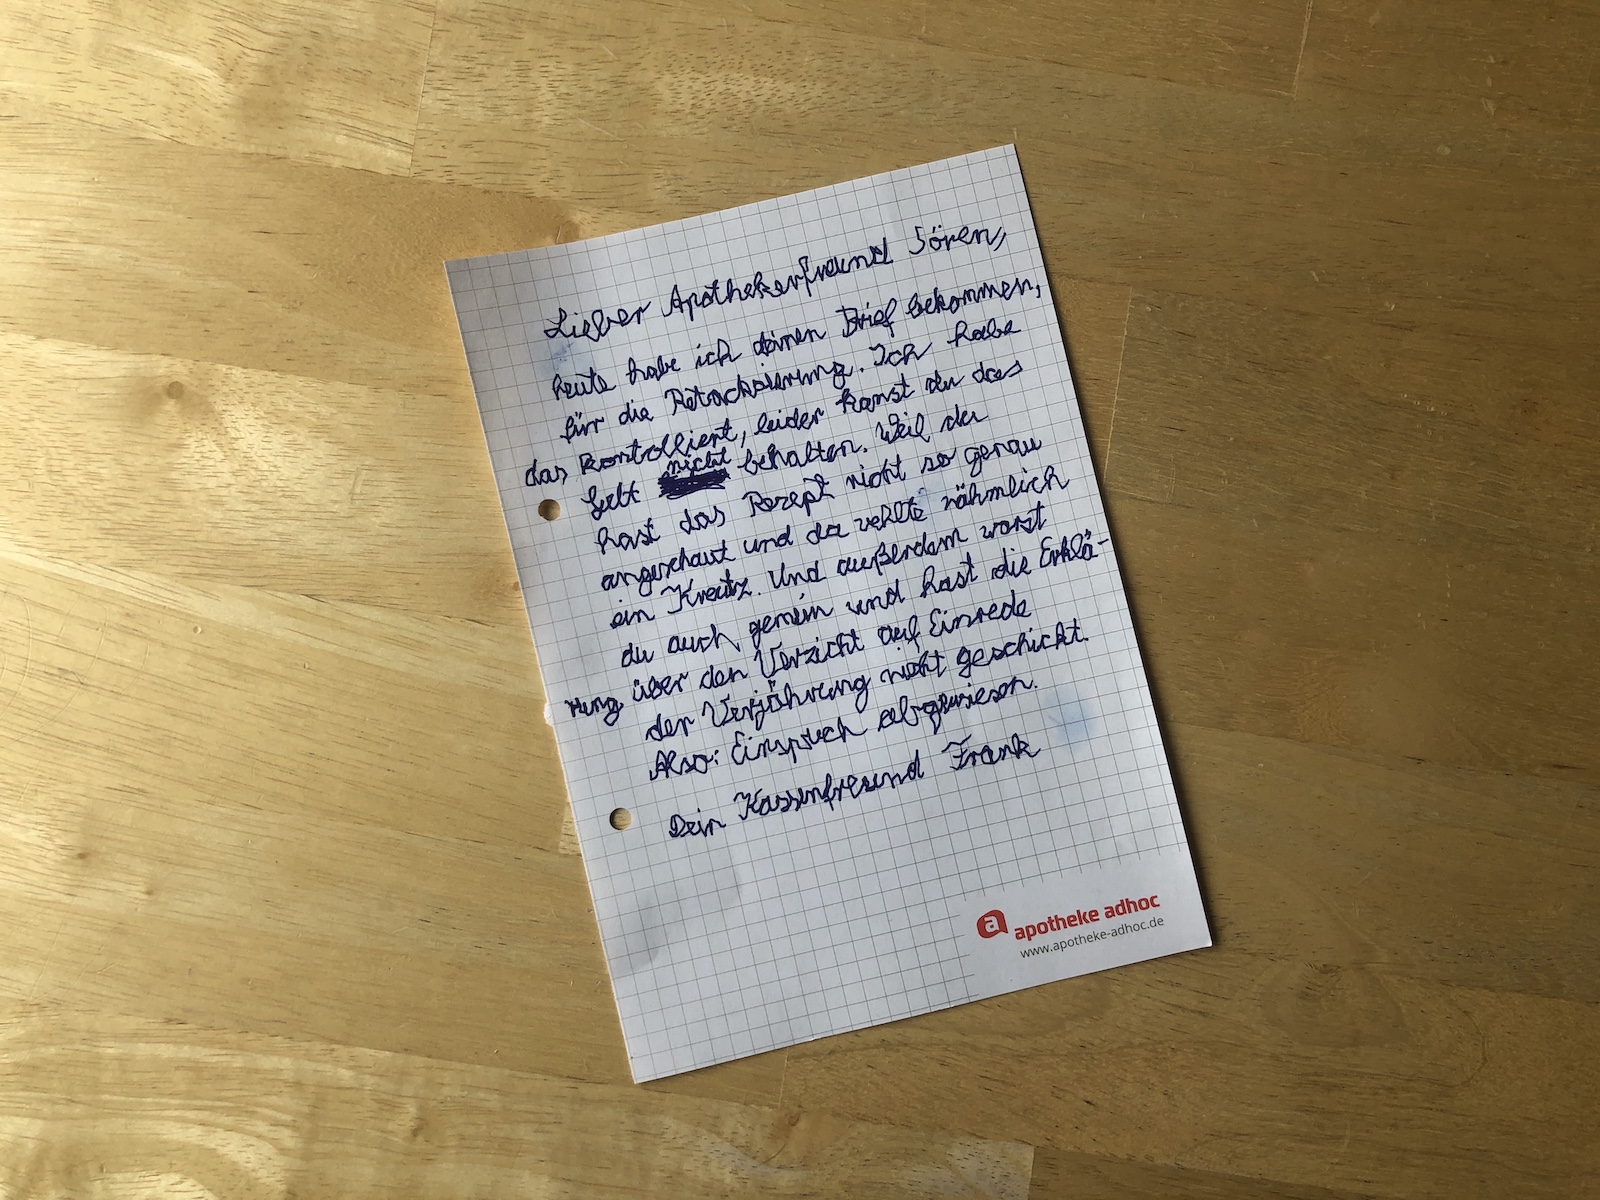 Lieber Apothekerfreund Sören,
heute habe ich deinen Brief bekommen,
für die Retachsierung. Ich habe
das kontrolliert, leider kanst du das
Gelt nicht behalten. Weil du
hast das Rezept nicht so genau
angeschaut und da vehlte nähmlich
ein Kreutz. Und außerdem warst
du auch gemein und hast die Erklä-
rung über den Verzicht auf Einrede
der Verjährung nicht geschickt.
Also: Einspruch abgewiesen.
Dein Kassenfreund Frank
a apotheke adhoc
www.apotheke-adhoc.de